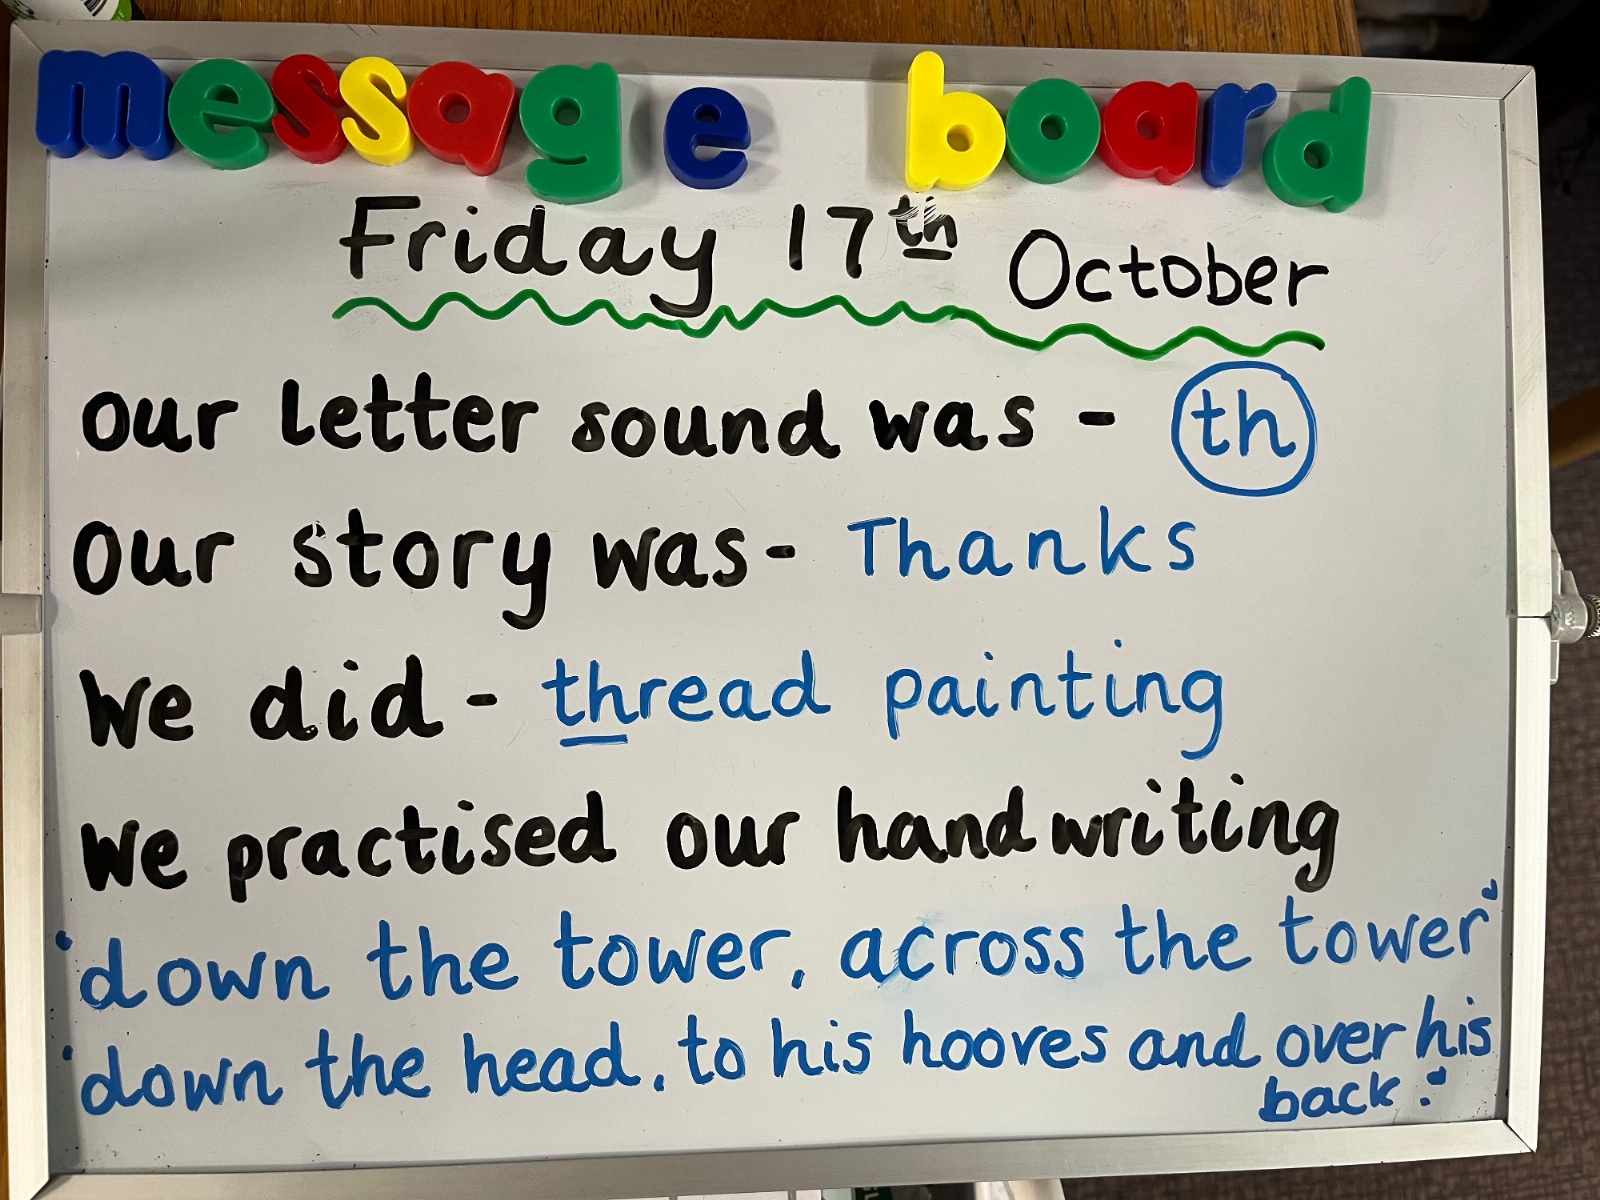 message board
Friday 17th October
our letter sound was - th
Our story was - Thanks
We did - thread painting
We practised our handwriting
'down the tower, across the tower'
'down the head, to his hooves and over his
back.'